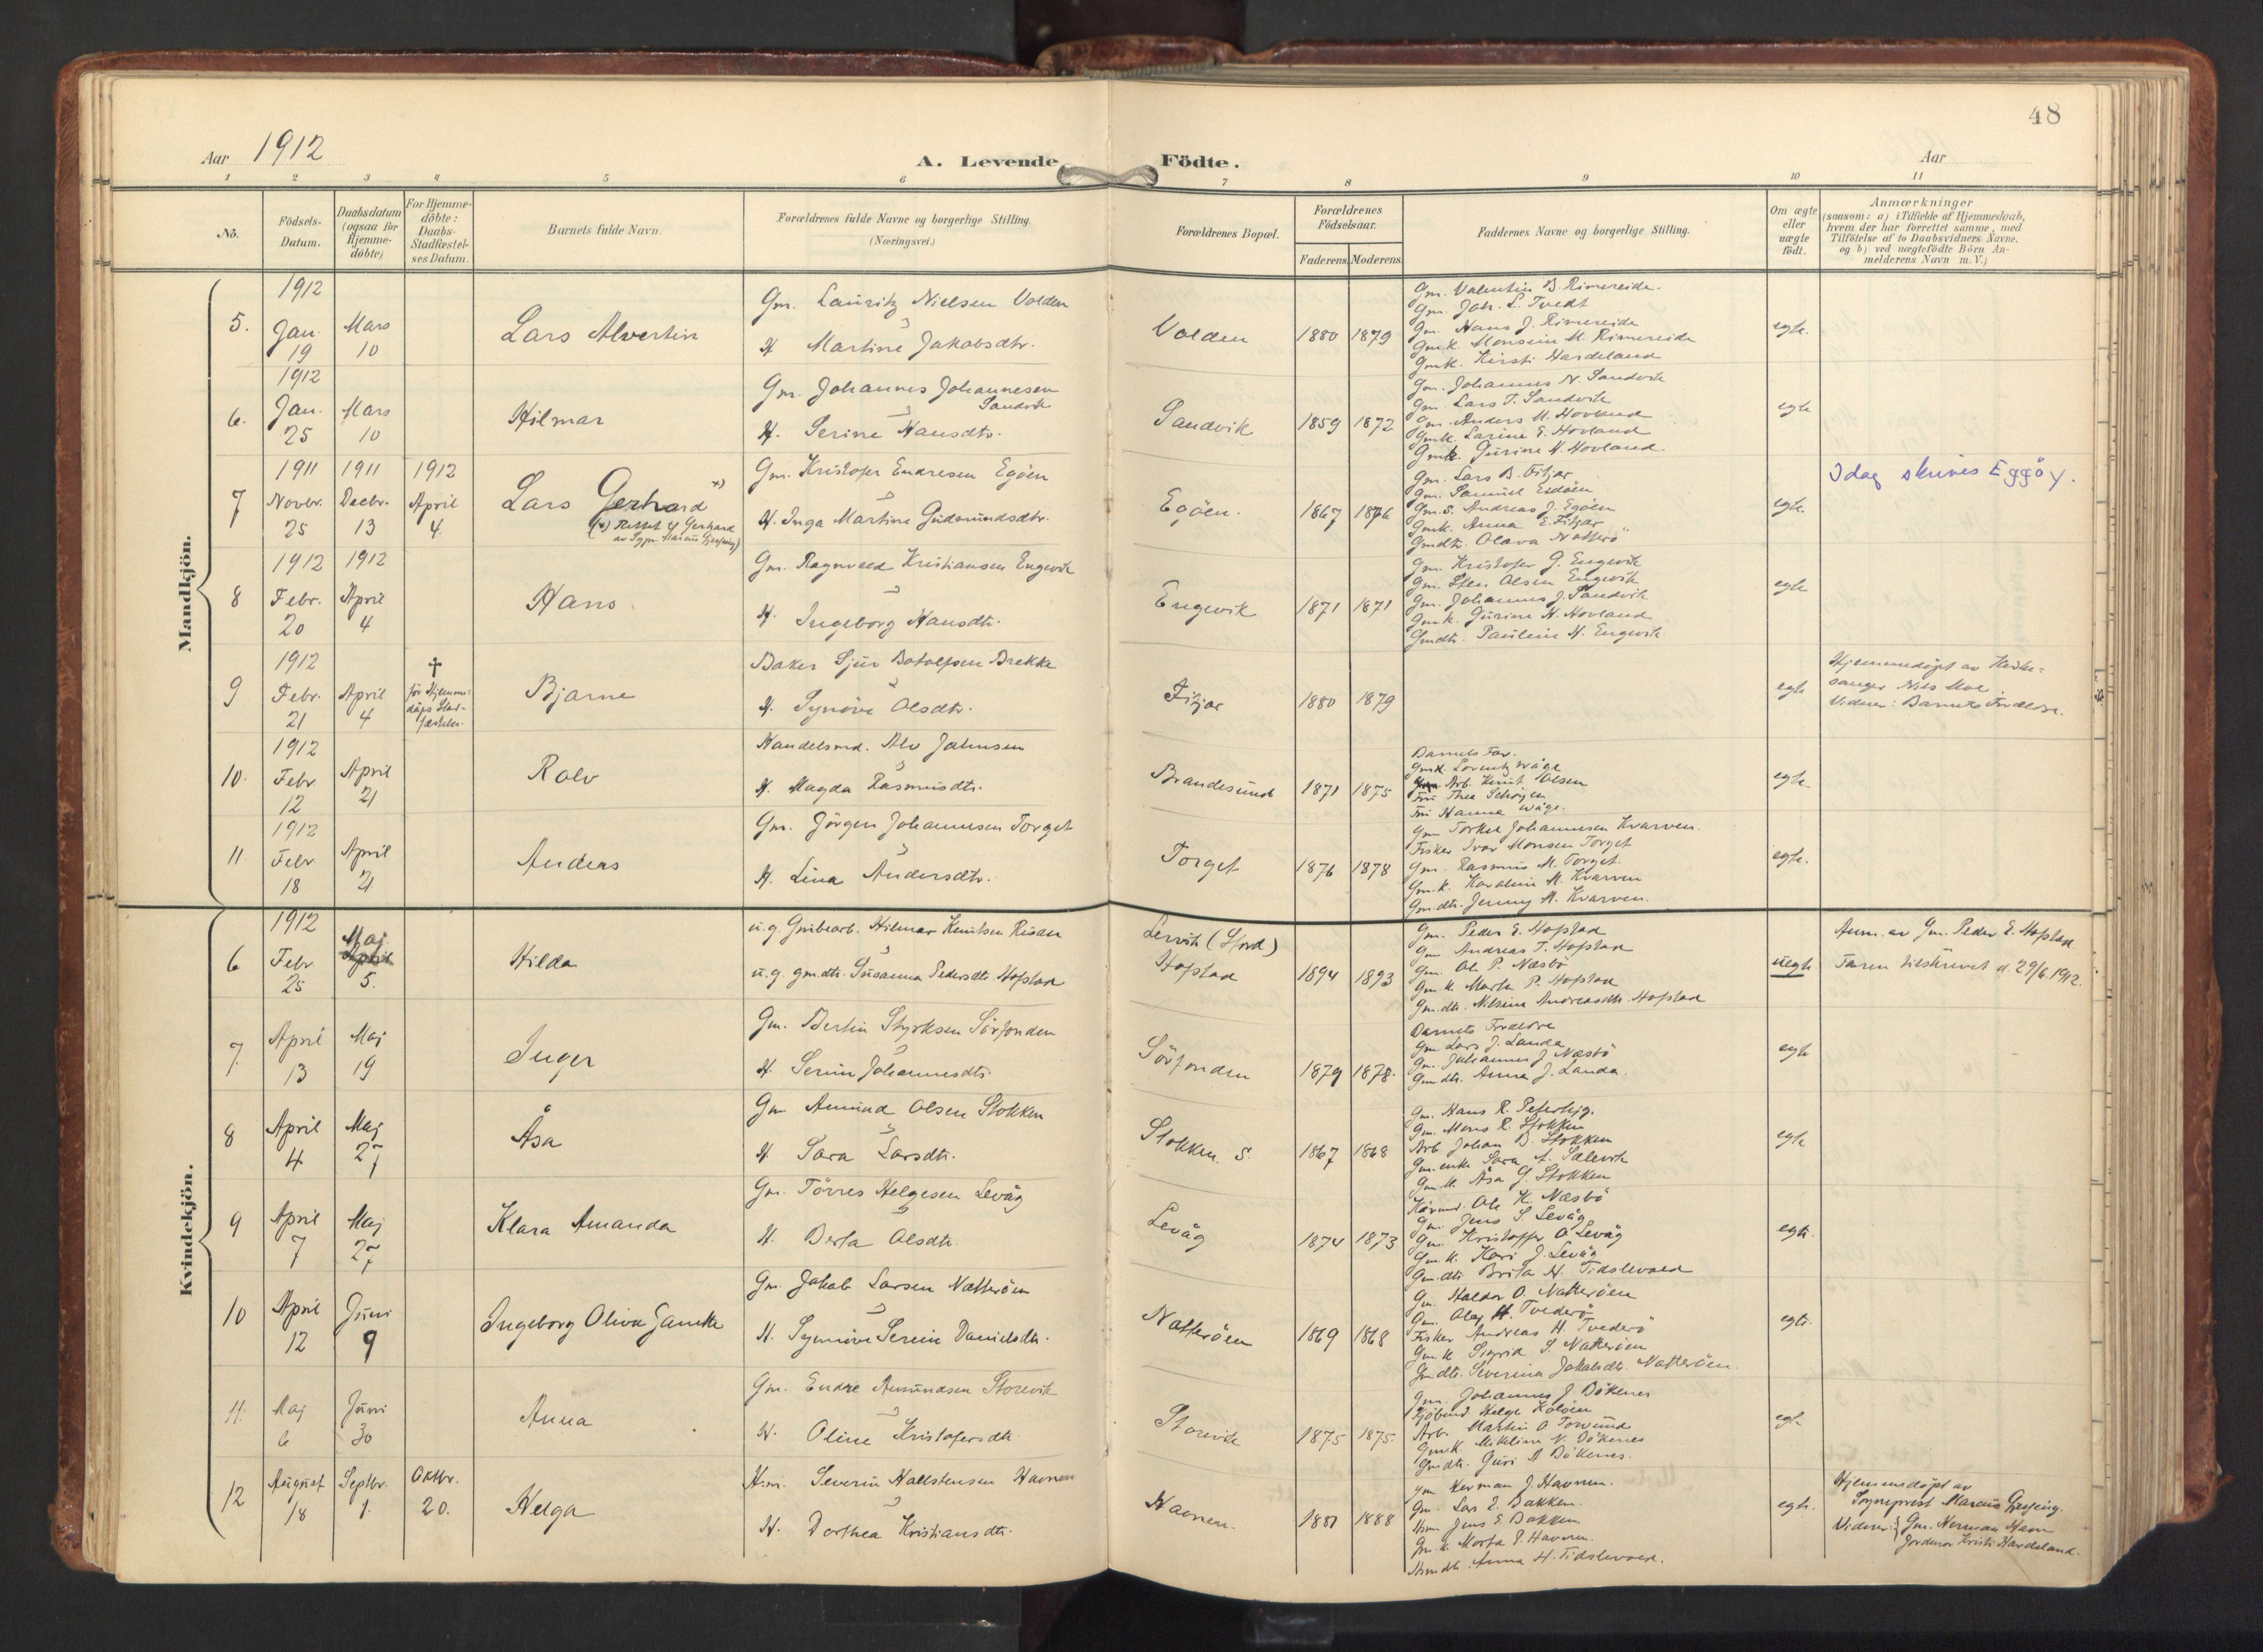 48
Aar 1912
A. Levende Födte.
Aar
1 2 3 4 5 6 7 8 9 10 11
No.
Födsels-Datum.
Daabsdatum (ogsaa for Hjemme-döbte)
For Hjemme-döbte: Daabs-Stadfæstel-ses Datum.
Barnets fulde Navn.
Forældrenes fulde Navne og borgerlige Stilling. (Næringsvei.)
Forældrenes Bopæl.
Forældrenes Födselsaar.
Faderens. Moderens.
Faddernes Navne og borgerlige Stilling.
Om ægte eller uægte födt.
Anmærkninger
(saasom: a) i Tilfælde af Hjemmedaab,
hvem der har forrettet samme, med
Tilföielse af to Daabsvidners Navne.
og b) ved uægtefödte Börn An-
melderens Navn m. V.)
Mandkjön.
5. 1912 Jan. 19 Mars 10 Lars Alvertin
Gm. Lauritz Nielsen Volden
H Martine Jakobsdtr.
Volden 1880 1879
Gm. Valentin B. Rimereide.
Gm. Joh. L. Tvedt
Gm. Hans J. Rimereide
Gmk. Monsine M. Rimereide
Gmk. Kirsti Hardeland
egte.
6. 1912 Jan. 25 Mars 10 Hilmar
Gm. Johannes Johannesen Sandvik
H. Serine Hansdtr.
Sandvik 1859 1872
Gm. Johannes N. Sandvik
Gm. Lars T. Sandvik
Gm. Anders M. Hovland
Gmk. Larine E. Hovland
Gmk. Gurine H. Hovland
egte
7 1911 Novbr. 25 1911 Decbr. 13 1912 April 4. Lars Gerhard x)
(x) Rettet til Gerhard
av Sgpr. Marcus Gjessing)
Gm. Kristofer Endresen Egöen
H. Inga Martine Gudmundsdtr.
Egöen. 1867 1876
Gm. Lars B. Fitjar
Gm. Samuel Esdöen
Gm. S. Andreas J. Egöen
Gmk. Anna E. Fitjar
Gmdtr. Olava Natterö
egte.
Idag skrives Eggöy.
8 1912 Febr. 20 1912 April 4 Hans
Gm. Ragnvald Kristiansen Engevik
H. Ingeborg Hansdtr.
Engevik 1871 1871
Gm. Kristofer G. Engevik
Gm. Sten Olsen Engevik
Gm. Johannes J. Sandvik
Gmk. Gurine H. Hovland
Gmdtr. Pauline H. Engevik
egte
9 1912 Febr. 21 April 4 † för Hjemme-
daaps Stad-
fæstelse. Bjarne
Baker Sjur Botolfsen Brekke
H. Synöve Olsdtr.
Fitjar 1880 1879
egte
Hjemmedöpt av Kirke-
sanger Nils Moe.
Vidner: Barnets Forældre.
10. 1912 Febr 12 April 21 Rolv
Handelsmd. Alv Johnsen
H. Magda Rasmusdtr.
Brandesund 1871 1875
Barnets Far.
Gmk. Lorentz Wåge
Arb. Knut Olsen
Fru Thea Schöyen
Fru Hanna Wåge.
egte
11. 1912 Febr 18 April 21 Andreas
Gm. Jörgen Johannesen Torget
H. Lina Andersdtr.
Torget 1876 1878
Gm Torkel Johannesen Kvarven.
Fisker Ivar Monsen Torget
Gm. Rasmus M. Torget
Gm.k. Karoline M. Kvarven
Gm.dtr. Jenny M. Kvarven.
egte.
Kvindekjön.
6 1912 Febr 25 Maj April 5. Hilda
u.g. Grubearb. Hilmar Knutsen Risdan
u.g. gm.dtr. Susanna Pedersdtr Hopstad
Lervik (Stord)
Hopstad 1894 1893
Gm. Peder E. Hopstad
Gm Andreas T. Hopstad
Gm. Ole P. Næsbö
Gm k Marta P. Hopstad
Gm.dtr. Nilsine Andreasdtr. Hopstad
uegte
Anm. av Gm. Peder E. Hopstad
Faren tilskrevet d. 29/6.1912.
7. April 13 Maj 19 Inger
Gm. Bertin Styrksen Sörfonden
H. Serine Johannesdtr.
Sörfonden 1879 1878.
Barnets Forældre
Gm. Lars J. Landa
Gm. Johannes J Næsbö
Gm dtr. Anna J. Landa.
egte
8 April 4 Maj 27 Åsa
Gm Amund Olsen Stokken
H Sara Larsdtr.
Stokken. S. 1867 1868
Gm. Hans R. Peterteig.
Gm. Mons R. Stokken
Arb Johan B. Stokken
Gm.enke Sara A. Sælevik
Gm.k. Åsa G. Stokken
egte
9 April 7 Maj 27 Klara Amanda
Gm. Törres Helgesen Levåg
H. Berta Olsdtr.
Levåg 1874 1873
Kårmd. Ole K. Næsbö
Gm. Jens S Levåg
Gm. Kristoffer O Levåg
Gm.k. Kari J. Levåg
Gm.dtr Brita H. Tidslevold
egte.
10 April 12 Juni 9 Ingeborg Oliva Jamette
Gm. Jakob Larsen Natteröen
H. Synnöve Serine Danielsdtr.
Natteröen 1869 1868
Gm. Haldor O. Natteröen
Gm. Olai H. Tvederö
Fisker Andreas H. Tvederö
Gm.k Sigrid S. Natteröen
Gmdtr. Severina Jakobsdtr. Natteröen.
egte.
11. Maj 6 Juni 30 Anna
Gm. Endre Amundsen Storevik
H. Oline Kristofersdtr.
Storevik 1875 1875.
Gm. Johannes J Bökenes
Helge Kolöen
Arb. Martin O Torvund
Gm.k. Mikline N. Bökenes
Gmdtr. Guri A Bökenes.
egte
12 August 18 Septbr. 1. Oktbr. 20. Helga
Hm. Severin Hallstensen Havnen
H. Dorthea Kristiansdtr.
Havnen. 1881 1888
Gm Herman J. Havnen.
Gm. Lars E. Bakken.
Hm Jens E Bakken
Gm.k. Marta E. Havnen.
Hmdtr. Anna H. Tidslevold.
egte.
Hjemmedöpt av
Sogneprest Marcus Gjessing.
Vidner: Gm. Herman Havn
Jordmor Kristi Hardeland.